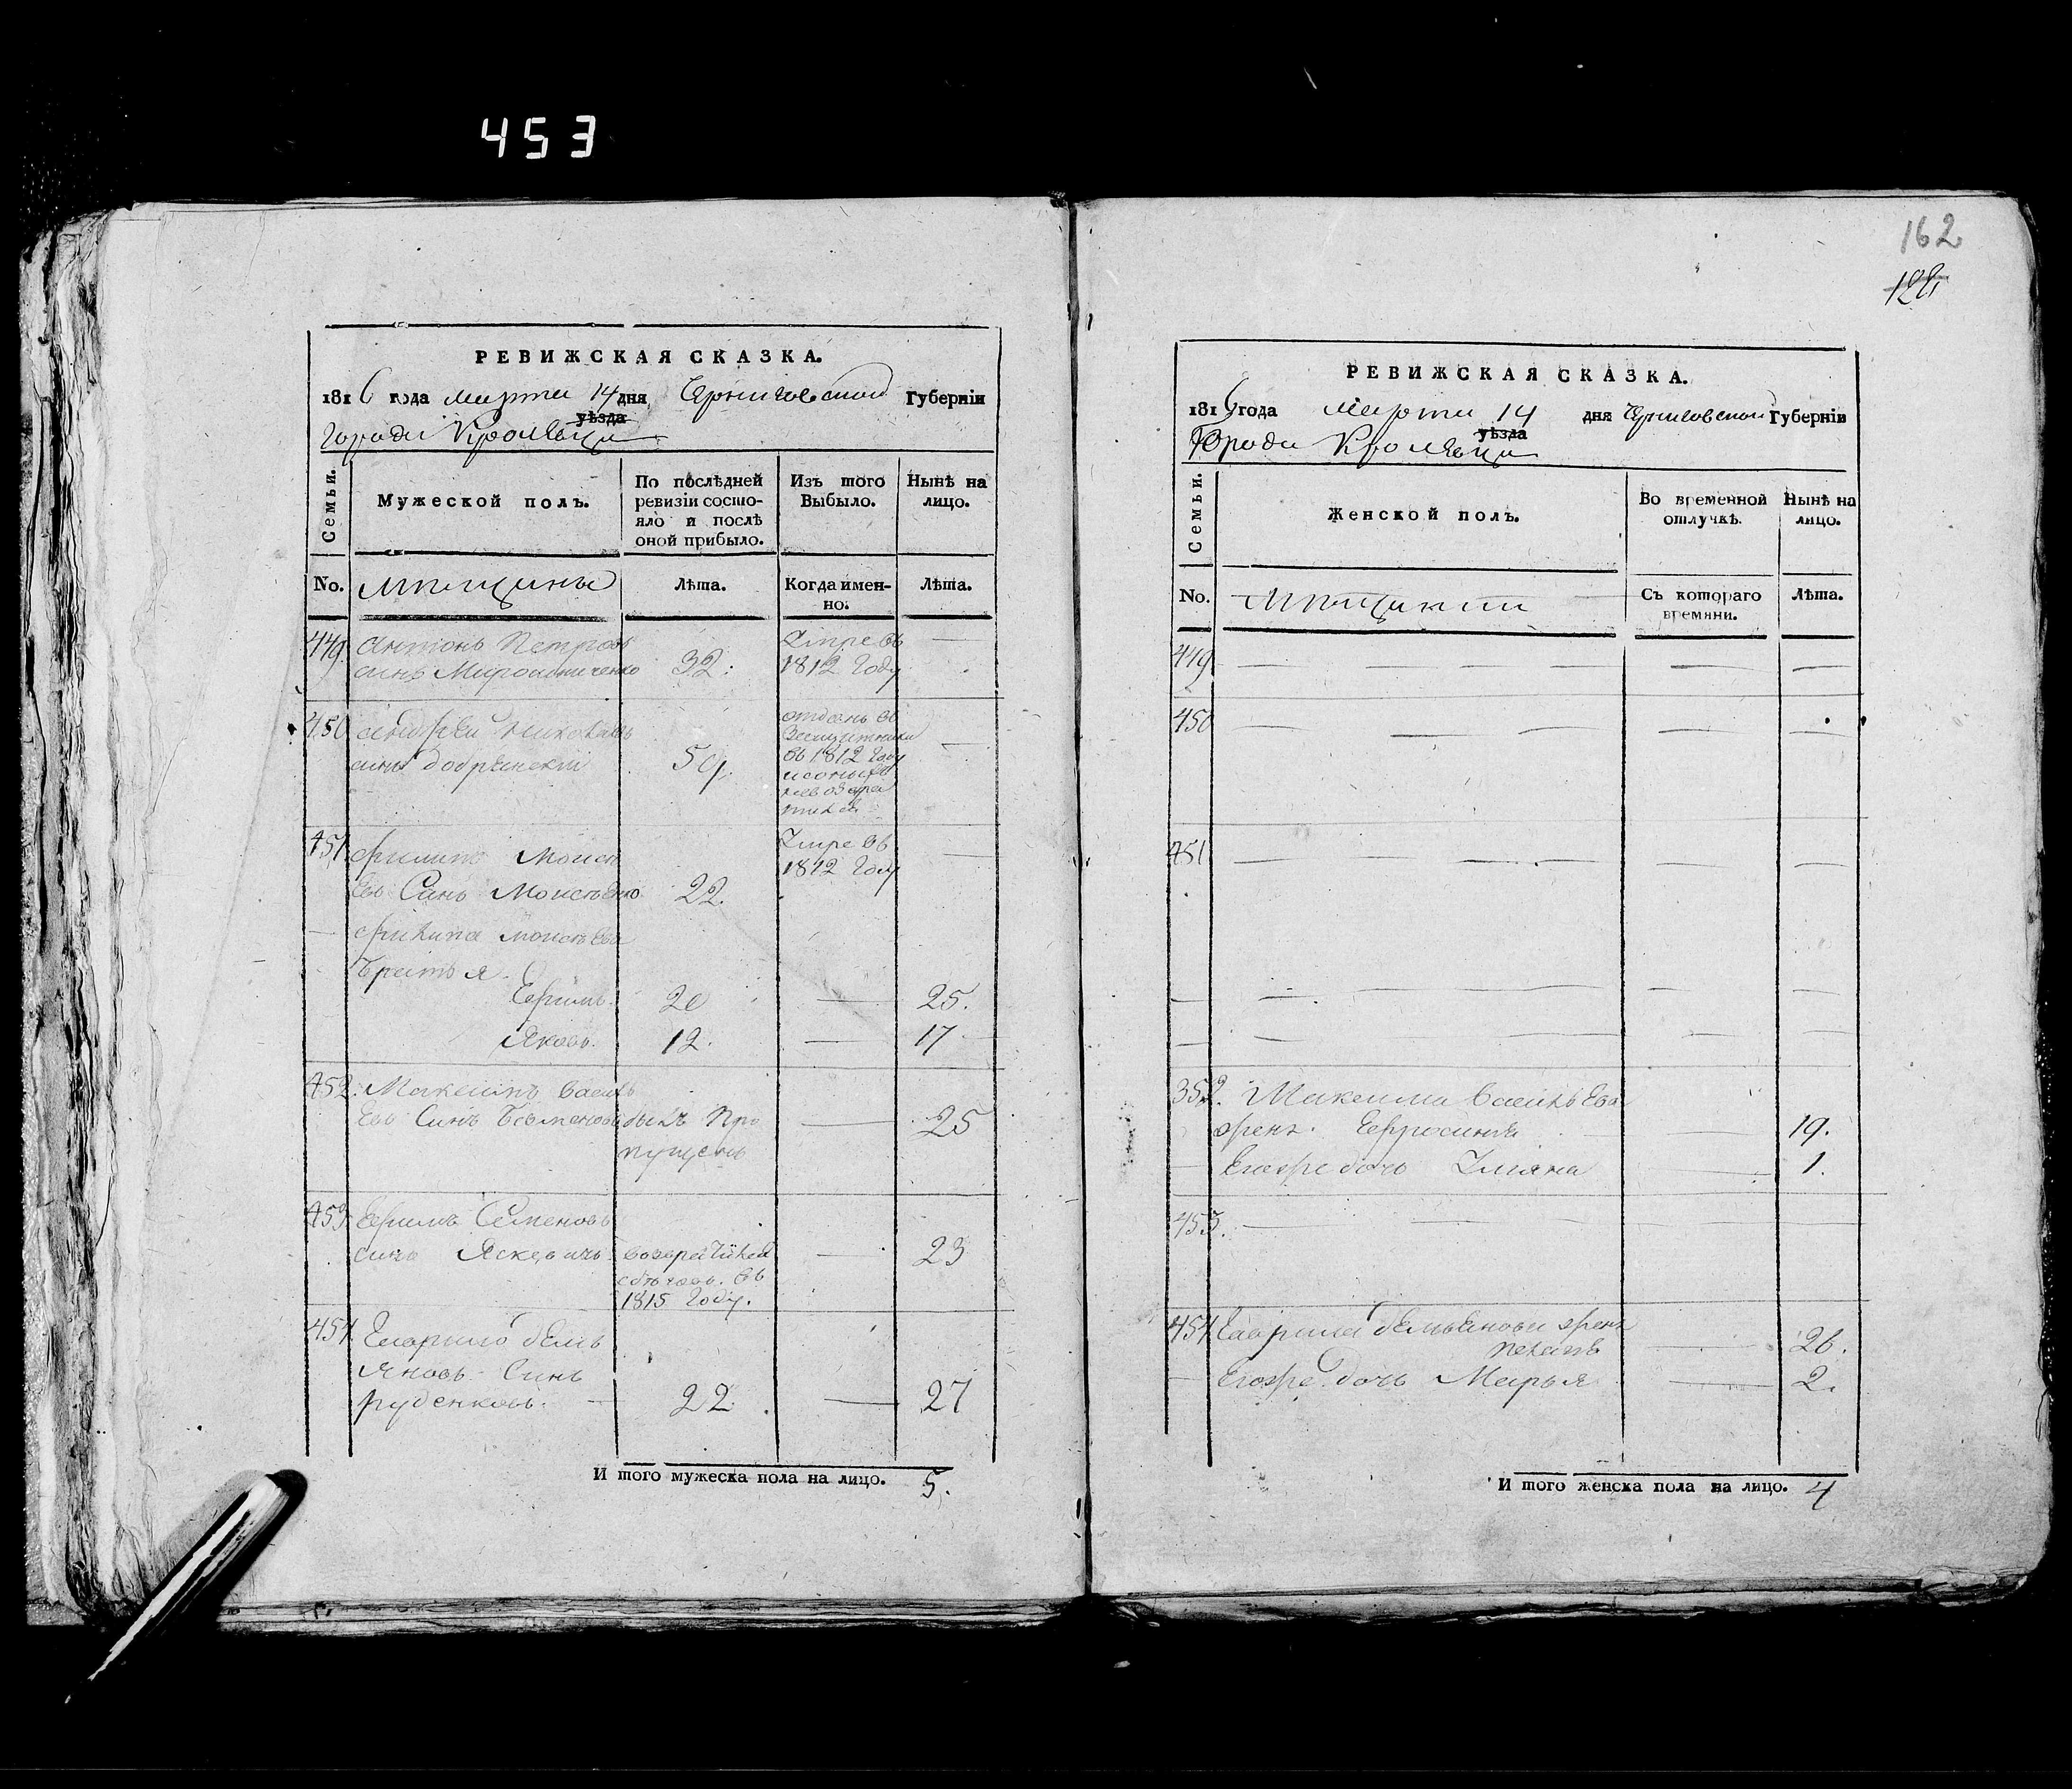 453
162
122
РЕВИЖСКАЯ СКАЗКА.
1816 года марта 14 дня Черниговской Губернїи
уѣзда
города Кролевца
Семьи.
Мужеской полъ.
По послѣдней ревизїи состо-
яло и послѣ
оной прибыло.
Изъ того
Выбыло.
Нынѣ на
лицо.
No.
мѣщины
Лѣта.
Когда имен-
но.
Лѣта.
449. Антонъ Петровъ
синъ Мирошниченко 32.
Умре въ
1812 году —
450 Андрей Николаевъ
синъ Добрянскїй 59.
отданъ въ
въ 1812 году
—
451 Филипъ Моисѣ
евъ Синъ Моисѣенко 22.
Умре въ
1812 году —
— Филипа Моисѣева
братья
Ефимъ. 20 — 25.
Яковъ. 12. — 17
452. Максимъ Василь
евъ Синъ былъ про — 25
пущенъ
453 Ефимъ Семеновъ
синъ Яскевичъ возвратился — 23
съ бѣговъ. въ
1815 году.
454. Гаврило Демь
яновъ Синъ
руденковъ. 22. — 27
И того мужеска пола на лицо. 5.
РЕВИЖСКАЯ СКАЗКА.
1816 года Марта 14 дня Черниговской Губернїи
уѣзда
Города Кролевца
Семьи.
Женской полъ.
Во временной
отлучкѣ.
Нынѣ на
лицо.
No.
Мѣщанки
Съ котораго
времяни.
Лѣта.
449 — — —
450 — — —
451 — — —
— — — —
— — — —
352. Максима Васильева
жена Ефросинїя — 19.
— Егоже дочь Ульяна — 1.
453. —
454 Гаврила Демьянова жена
— 26.
— Егоже дочь Марья — 2.
И того женска пола на лицо. 4